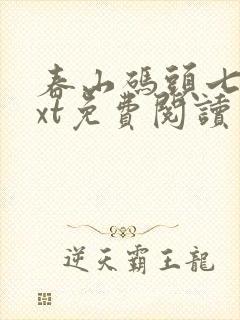 春山碼頭七
xt免費閱讀
逆天霸王龍